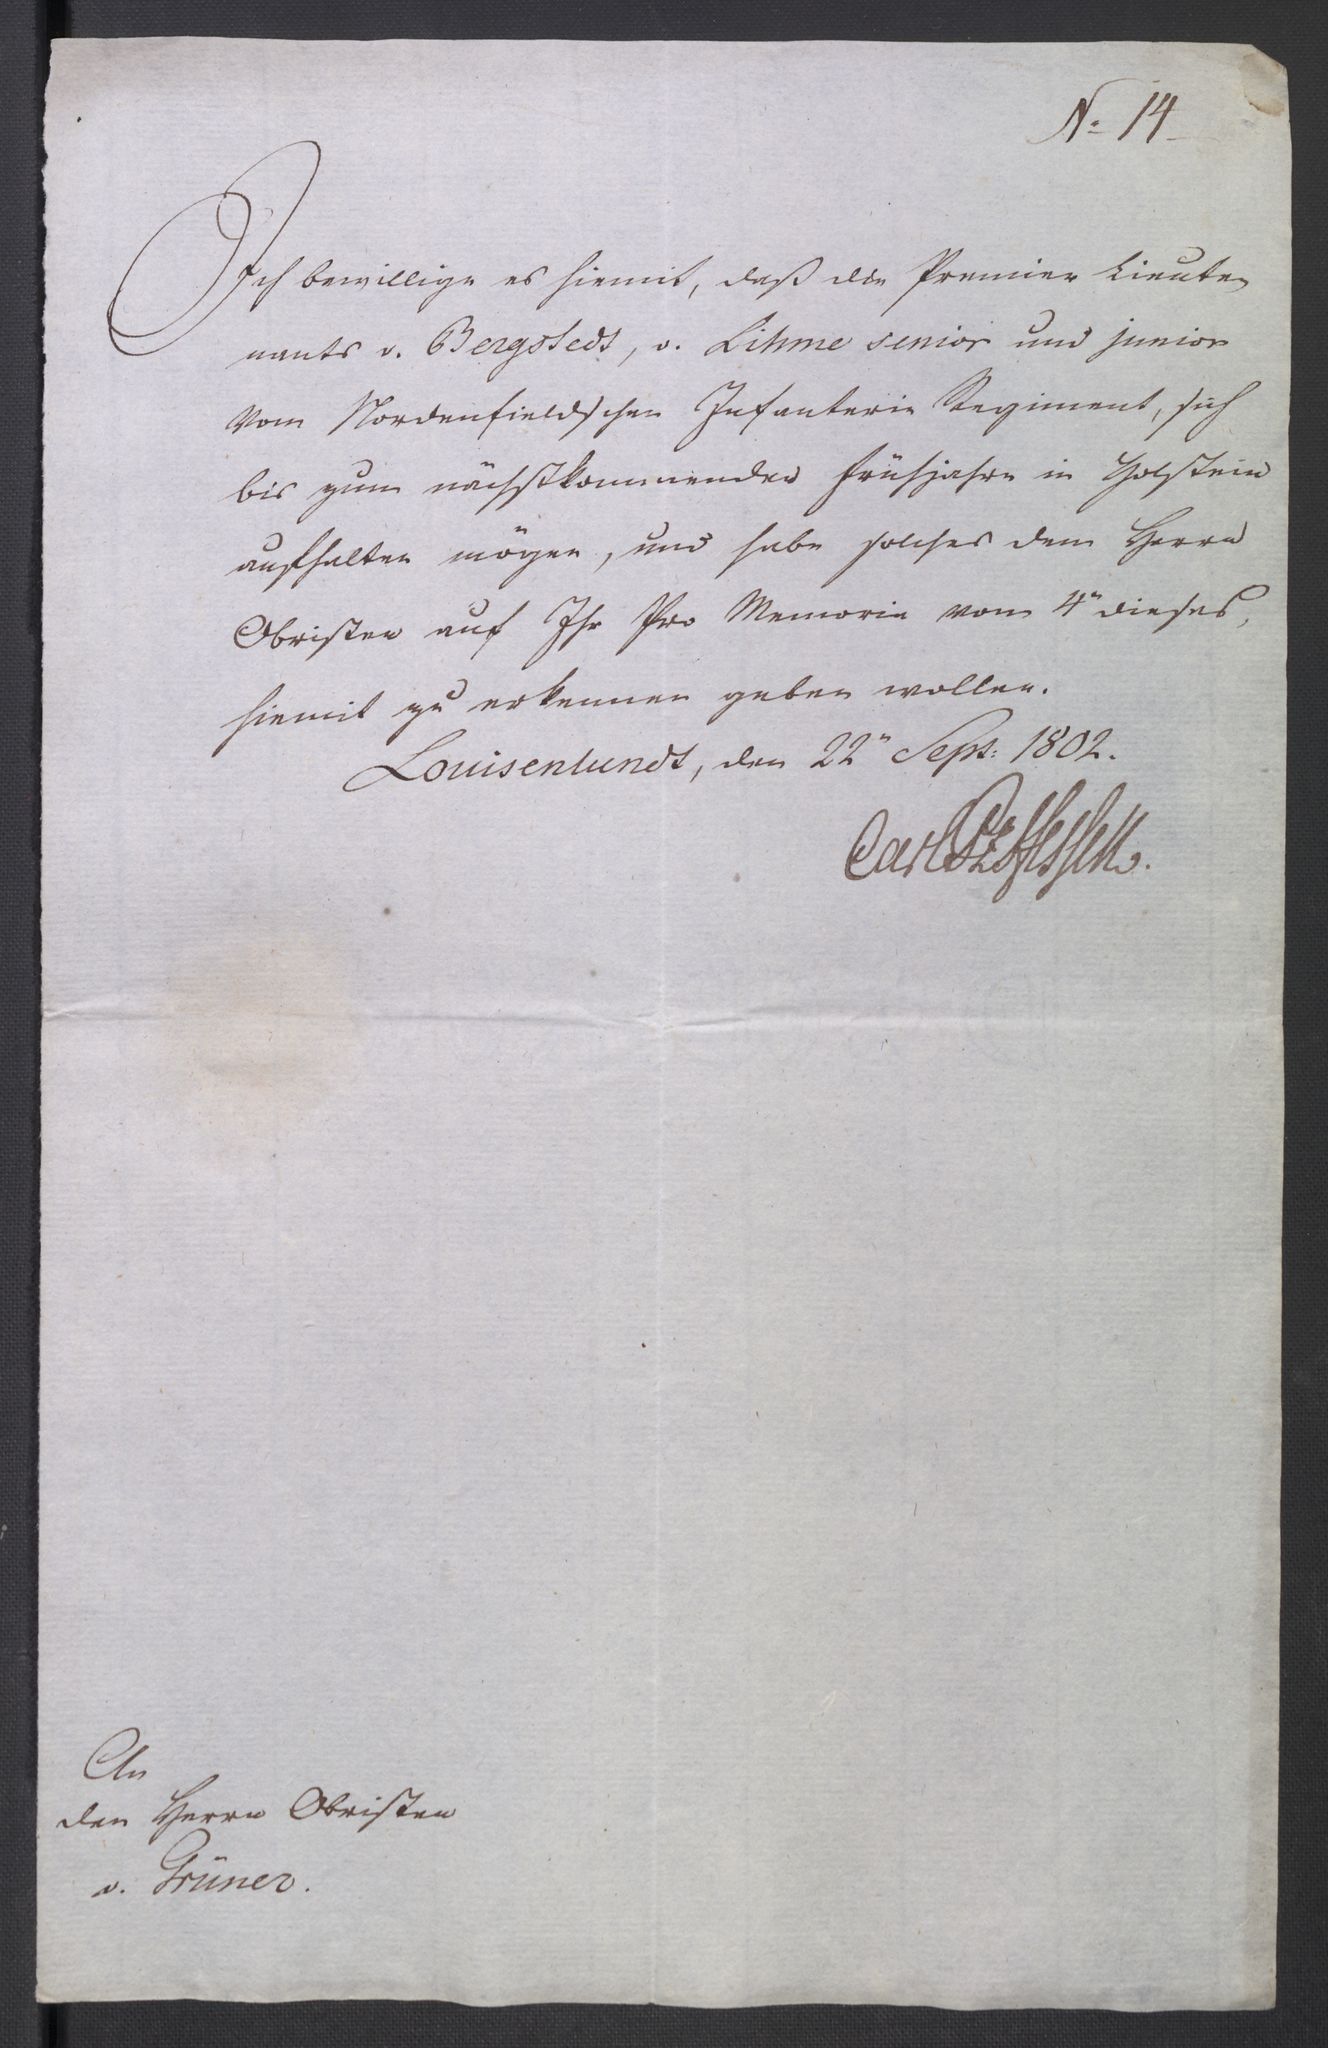 No 14
Ich bewillige es hiemit, daß die Premier Lieute
nants v. Bergstedt, v. Lihme senior und junior
vom Nordenfieldschen Infanterie Regiment, sich
bis zum nächstkommenden Frühjahre in Holstein
aufhalten mögen, und habe solches dem Herrn
Obristen auf Ihr Pro Memoria vom 4n dieses,
hiemit zu erkennen geben wollen.
Louisenlundt, den 22n Sept: 1802.
Carl PzHessen.
An
den Herrn Obristen
v. Grüner.